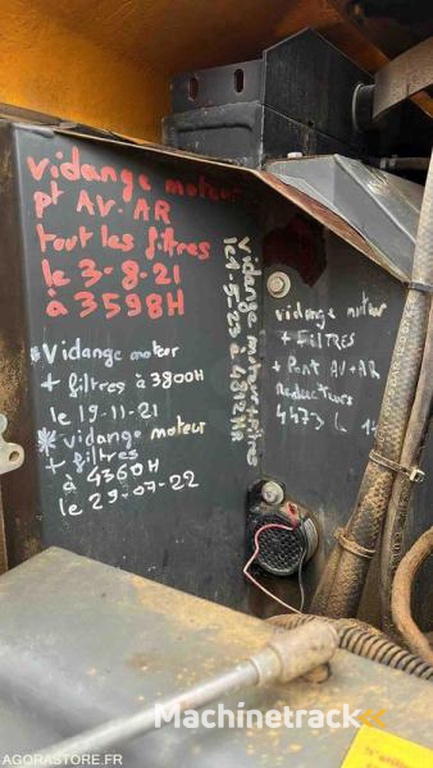 vidange moteur
pt AV. AR
tout les filtres
le 3-8-21
à 3598H
* Vidange moteur
+ filtres à 3800H
le 19-11-21
* vidange moteur
+ filtres
à 4360H
le 29-07-22
vidange moteur + filtre
à 4812HR
vidange moteur
+ FiLTRES
+ Pont AV + AR
Reducteurs
4473 h
Machinetrack
AGORASTORE.FR